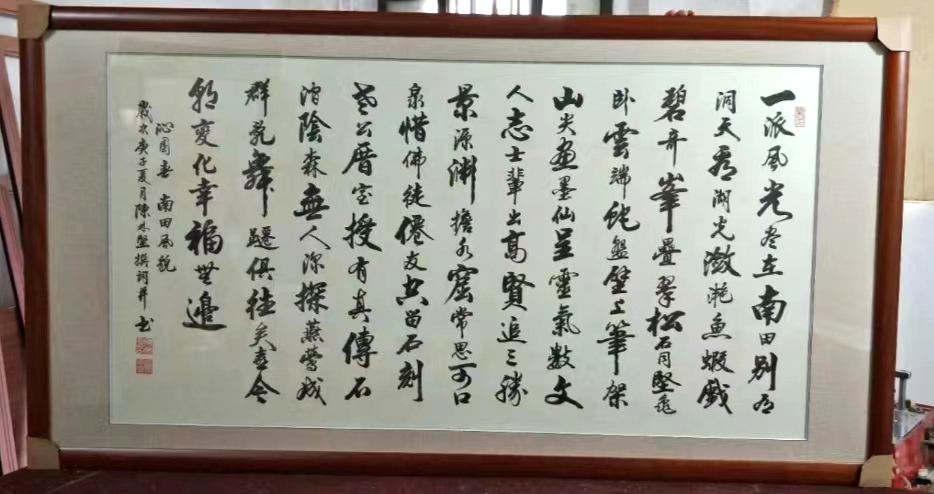 一派風光尽在南田别有
洞天看湖光潋滟魚蝦戲
碧奇峯疊翠松石同堅龜
卧雲端蛇盤壁上筆架
山尖画墨仙呈靈氣數文
人志士輩出高賢追三勝
景源渊擔水窟常思可口
泉惜佛徒僊友空留石刻
老公曆室授有真傳石
陰森無人深探燕鶯成
群乱舞躚俱往矣看今
朝变化幸福無邊
沁園春 南田風貌
歲次庚子夏月陳 撰词并书